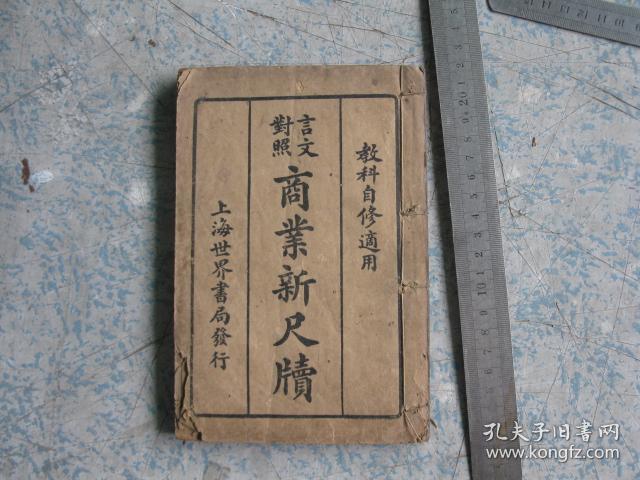 教科自修適用
言文
對照
商業新尺牘
上海世界書局發行
孔夫子旧書网
www.kongfz.com